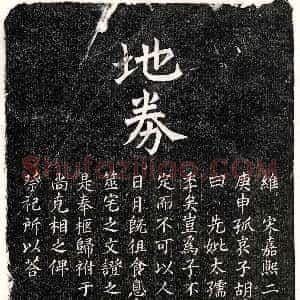 地券
維 宋嘉熙二
庚申孤哀子胡
曰 先妣太孺
季矣豈為子不
定而不可以人
日月既徂食息
筮宅之文證之
是奉柩歸祔于
尚克相之俾
祭祀所以荅